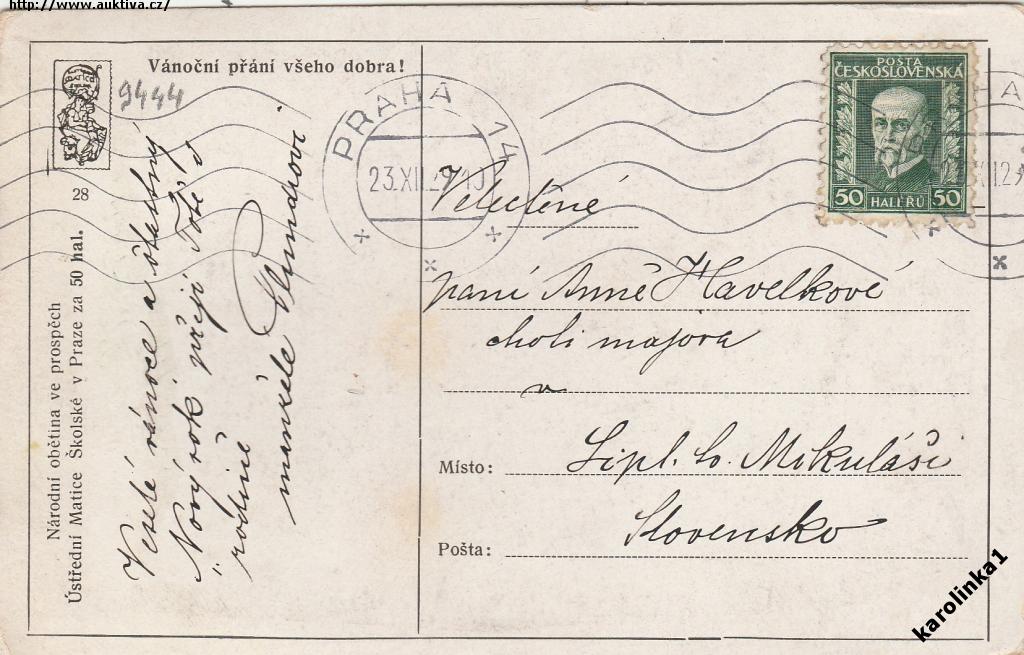 http://www.auktiva.cz/
Vánoční přání všeho dobra!
9444
28
Národní obětina ve prospěch
Ústřední Matice Školské v Praze za 50 hal.
Veselé vánoce a šťastný
Nový rok přejí Vaší
rodině
manželé
PRAHA 14
23.XII.
POŠTA
ČESKOSLOVENSKÁ
50 HALÉŘŮ 50
Velectěné
paní Anně Havelkové
choti majora
v
Místo: Lipt. Sv. Mikuláši
Pošta: Slovensko
karolinka1